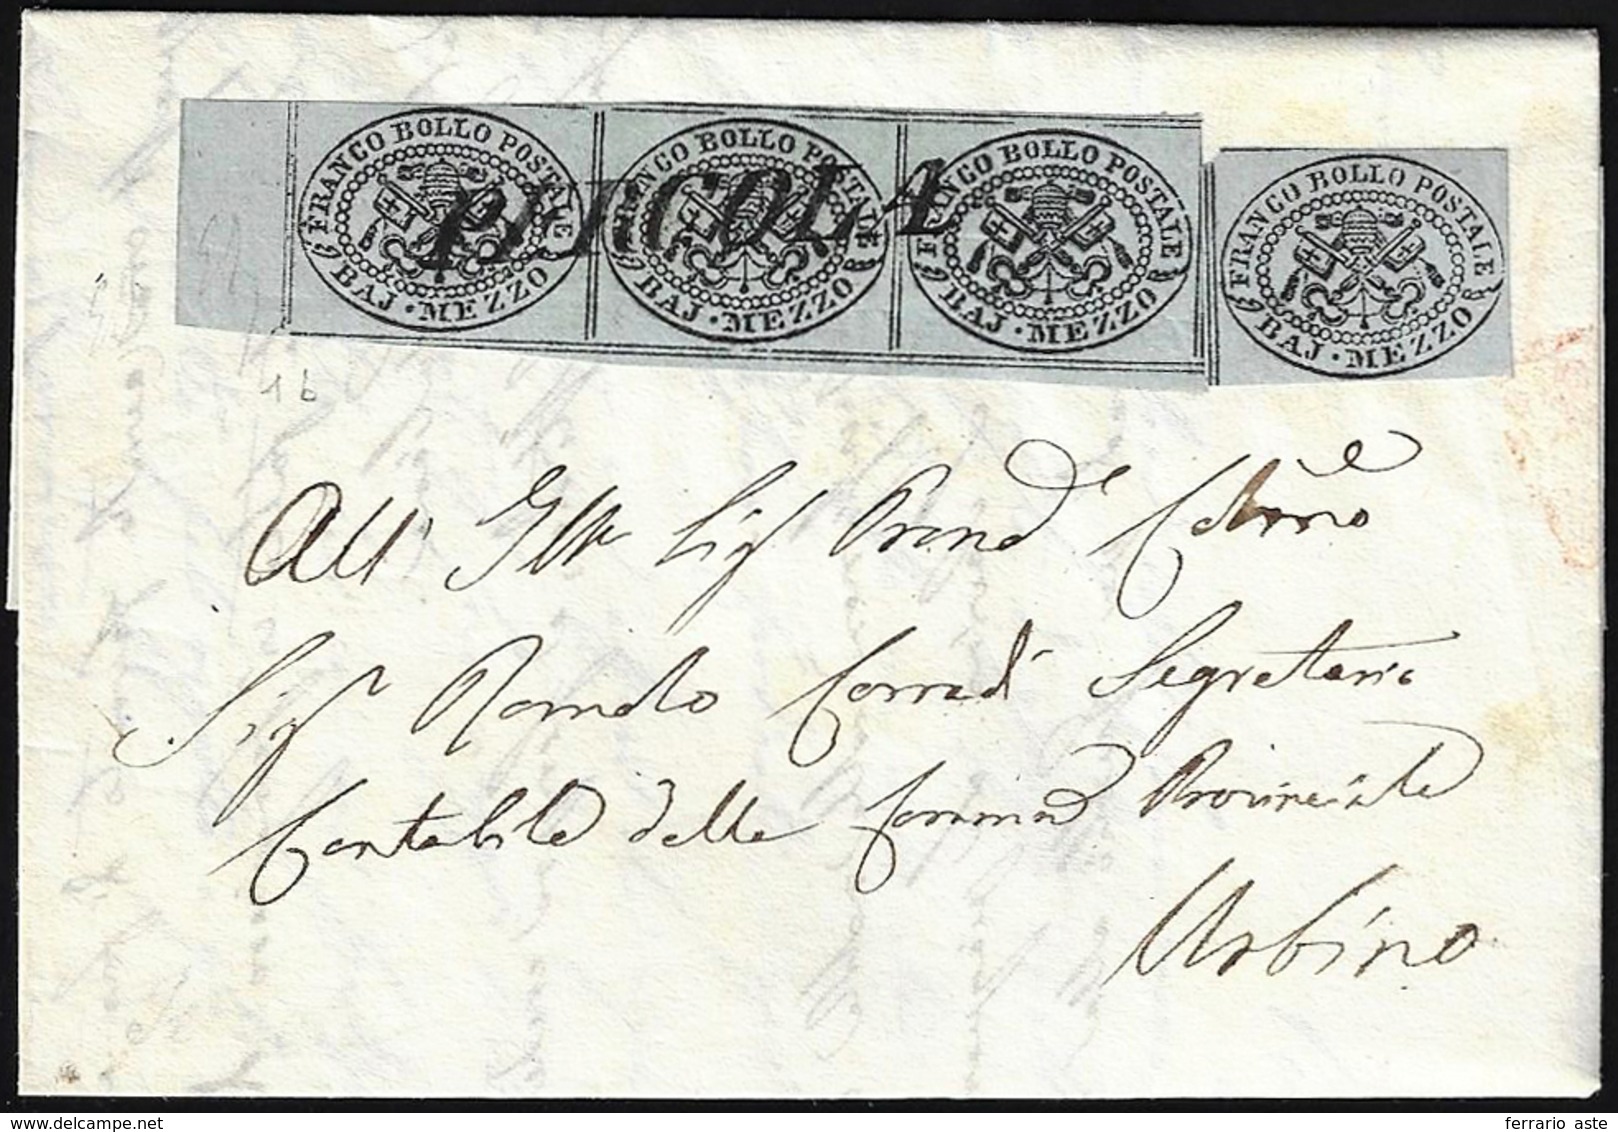 FRANCO BOLLO POSTALE BAJ · MEZZO
FRANCO BOLLO POSTALE BAJ · MEZZO
FRANCO BOLLO POSTALE BAJ · MEZZO
FRANCO BOLLO POSTALE BAJ · MEZZO
PERGOLA
1b
All'
Sig Romolo Corradi Segretario
Contabile della Provinciale
Urbino
ferrario aste